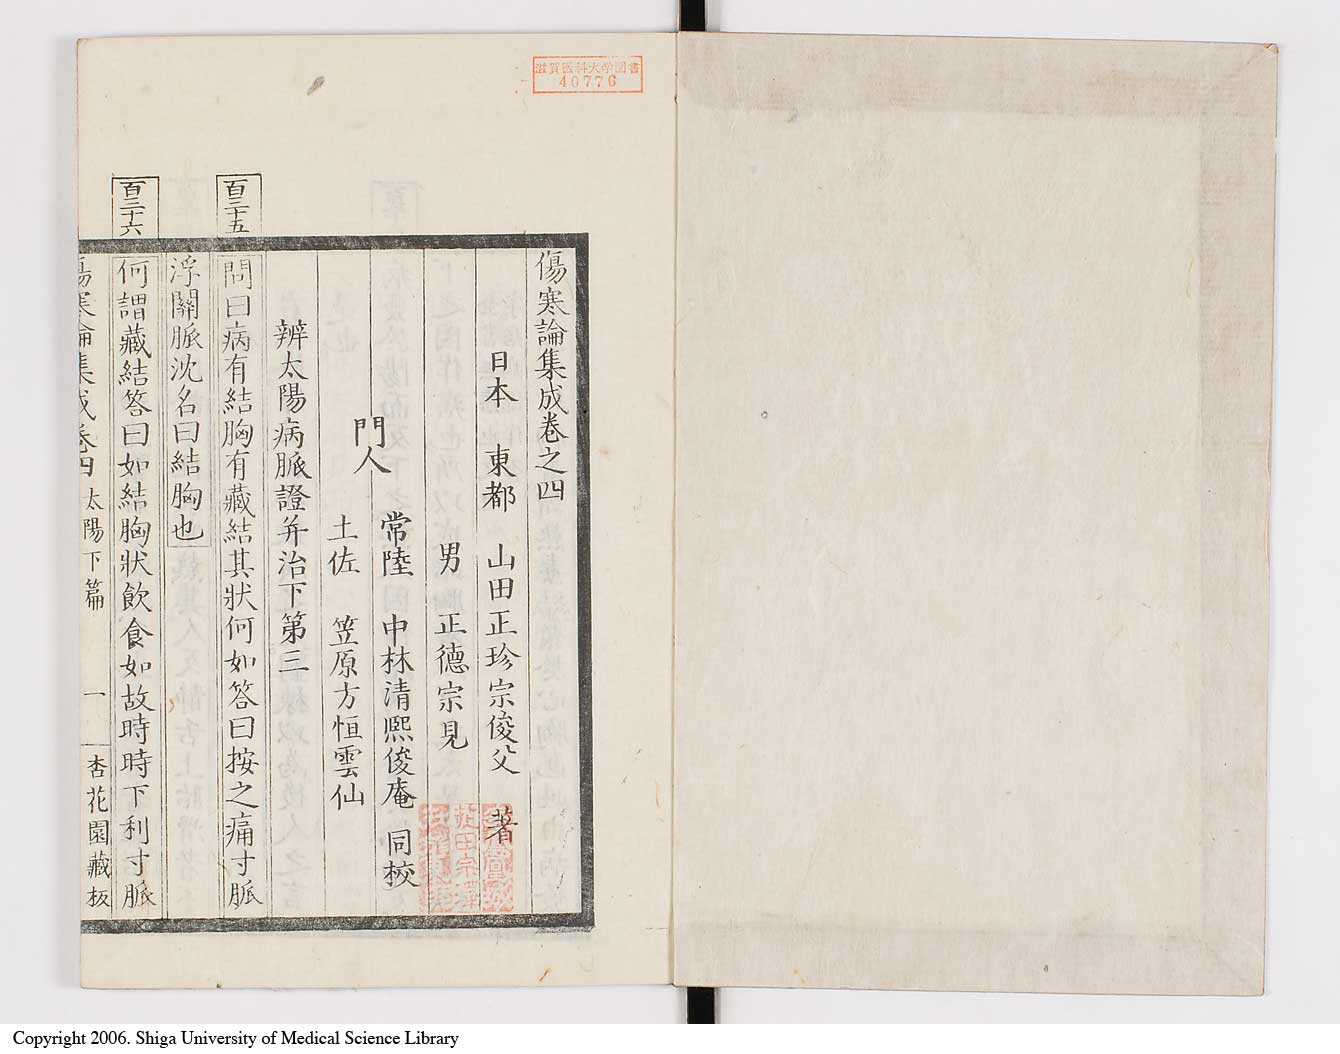 滋賀医科大学図書
40776
傷寒論集成卷之四
日本 東都 山田正珍宗俊父 著
男 正德宗見
門人
常陸 中林清熙俊庵 同挍
土佐 笠原方恒雲仙
辨太陽病脈證并治下第三
百三十五
問曰病有結胸有藏結其狀何如答曰按之痛寸脈
浮關脈沈名曰結胸也
百三十六
何謂藏結答曰如結胸狀飲食如故時時下利寸脈
傷寒論集成卷四 太陽下篇 一 杏花園藏板
Copyright 2006. Shiga University of Medical Science Library